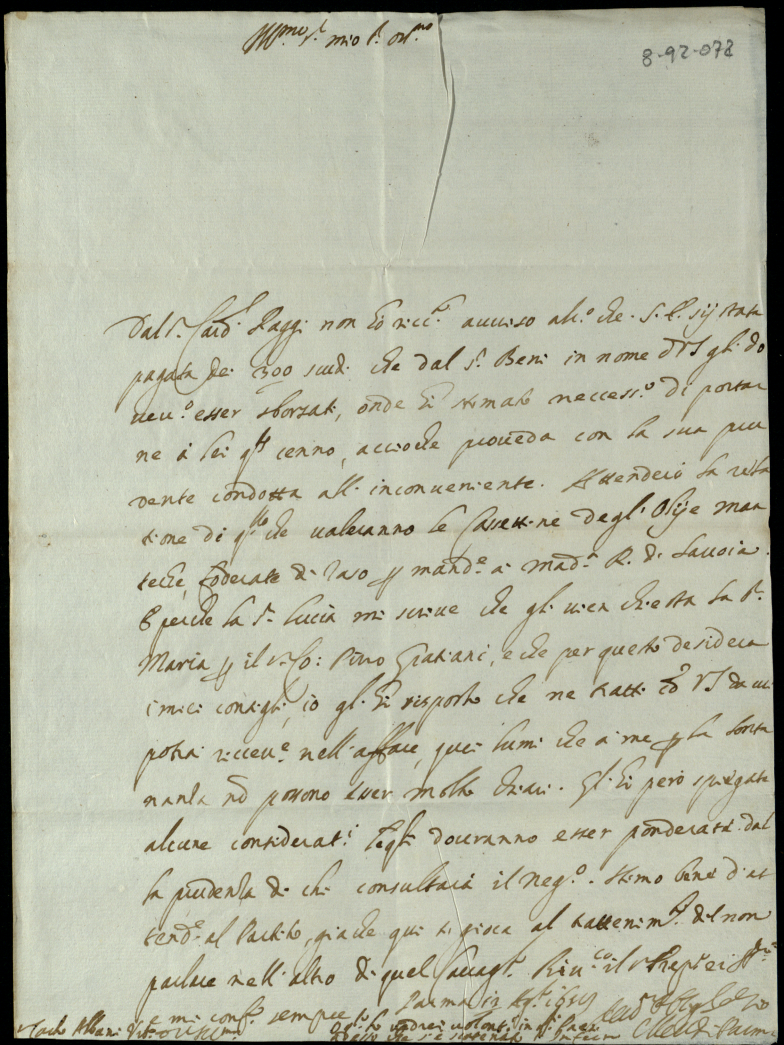 Ill.mo S.r mio P. oss.mo
8-92-072
Dal S.r Card. Raggi non hò ricc.to auuiso alc.o che S. E. sij stata
pagata dei 300 scudi che dal S.r Beni in nome di VS gli do
ueu.o esser sborsati, onde hò stimato neccess.o di portar
ne à lei q.to cenno, accioche proueda con la sua pru
dente condotta all'inconueniente. Attenderò la rela
tione di q.llo che ualeranno le Cassettine degl'Olij e man
teche foderate di raso p mand.e a Mad.a R. di Sauoia.
E perche la S.ra Lucia mi scriue che gli uien chiesta la S.ra
Maria p il S.r Co: Pirro Gratiani, e che per questo desidera
i miei consigli, io gl'hò risposto che ne tratti cõ VS da cui
potrà riceu.e nell'affare, quei lumi che a me p la lonta
nanza nõ possono esser molto chiari. Gl'hò però spiegate
alcune considerat.i che douranno esser ponderate dal
la prudenza di chi consultarà il neg.o. Stimo bene d'at
tend.e al Partito, giache qui si gioca al trattenim.to del non
parlare nell'altro di quel Caual.re Riu.co il
e mi conf.o sempre Parma 12 1689
Carlo